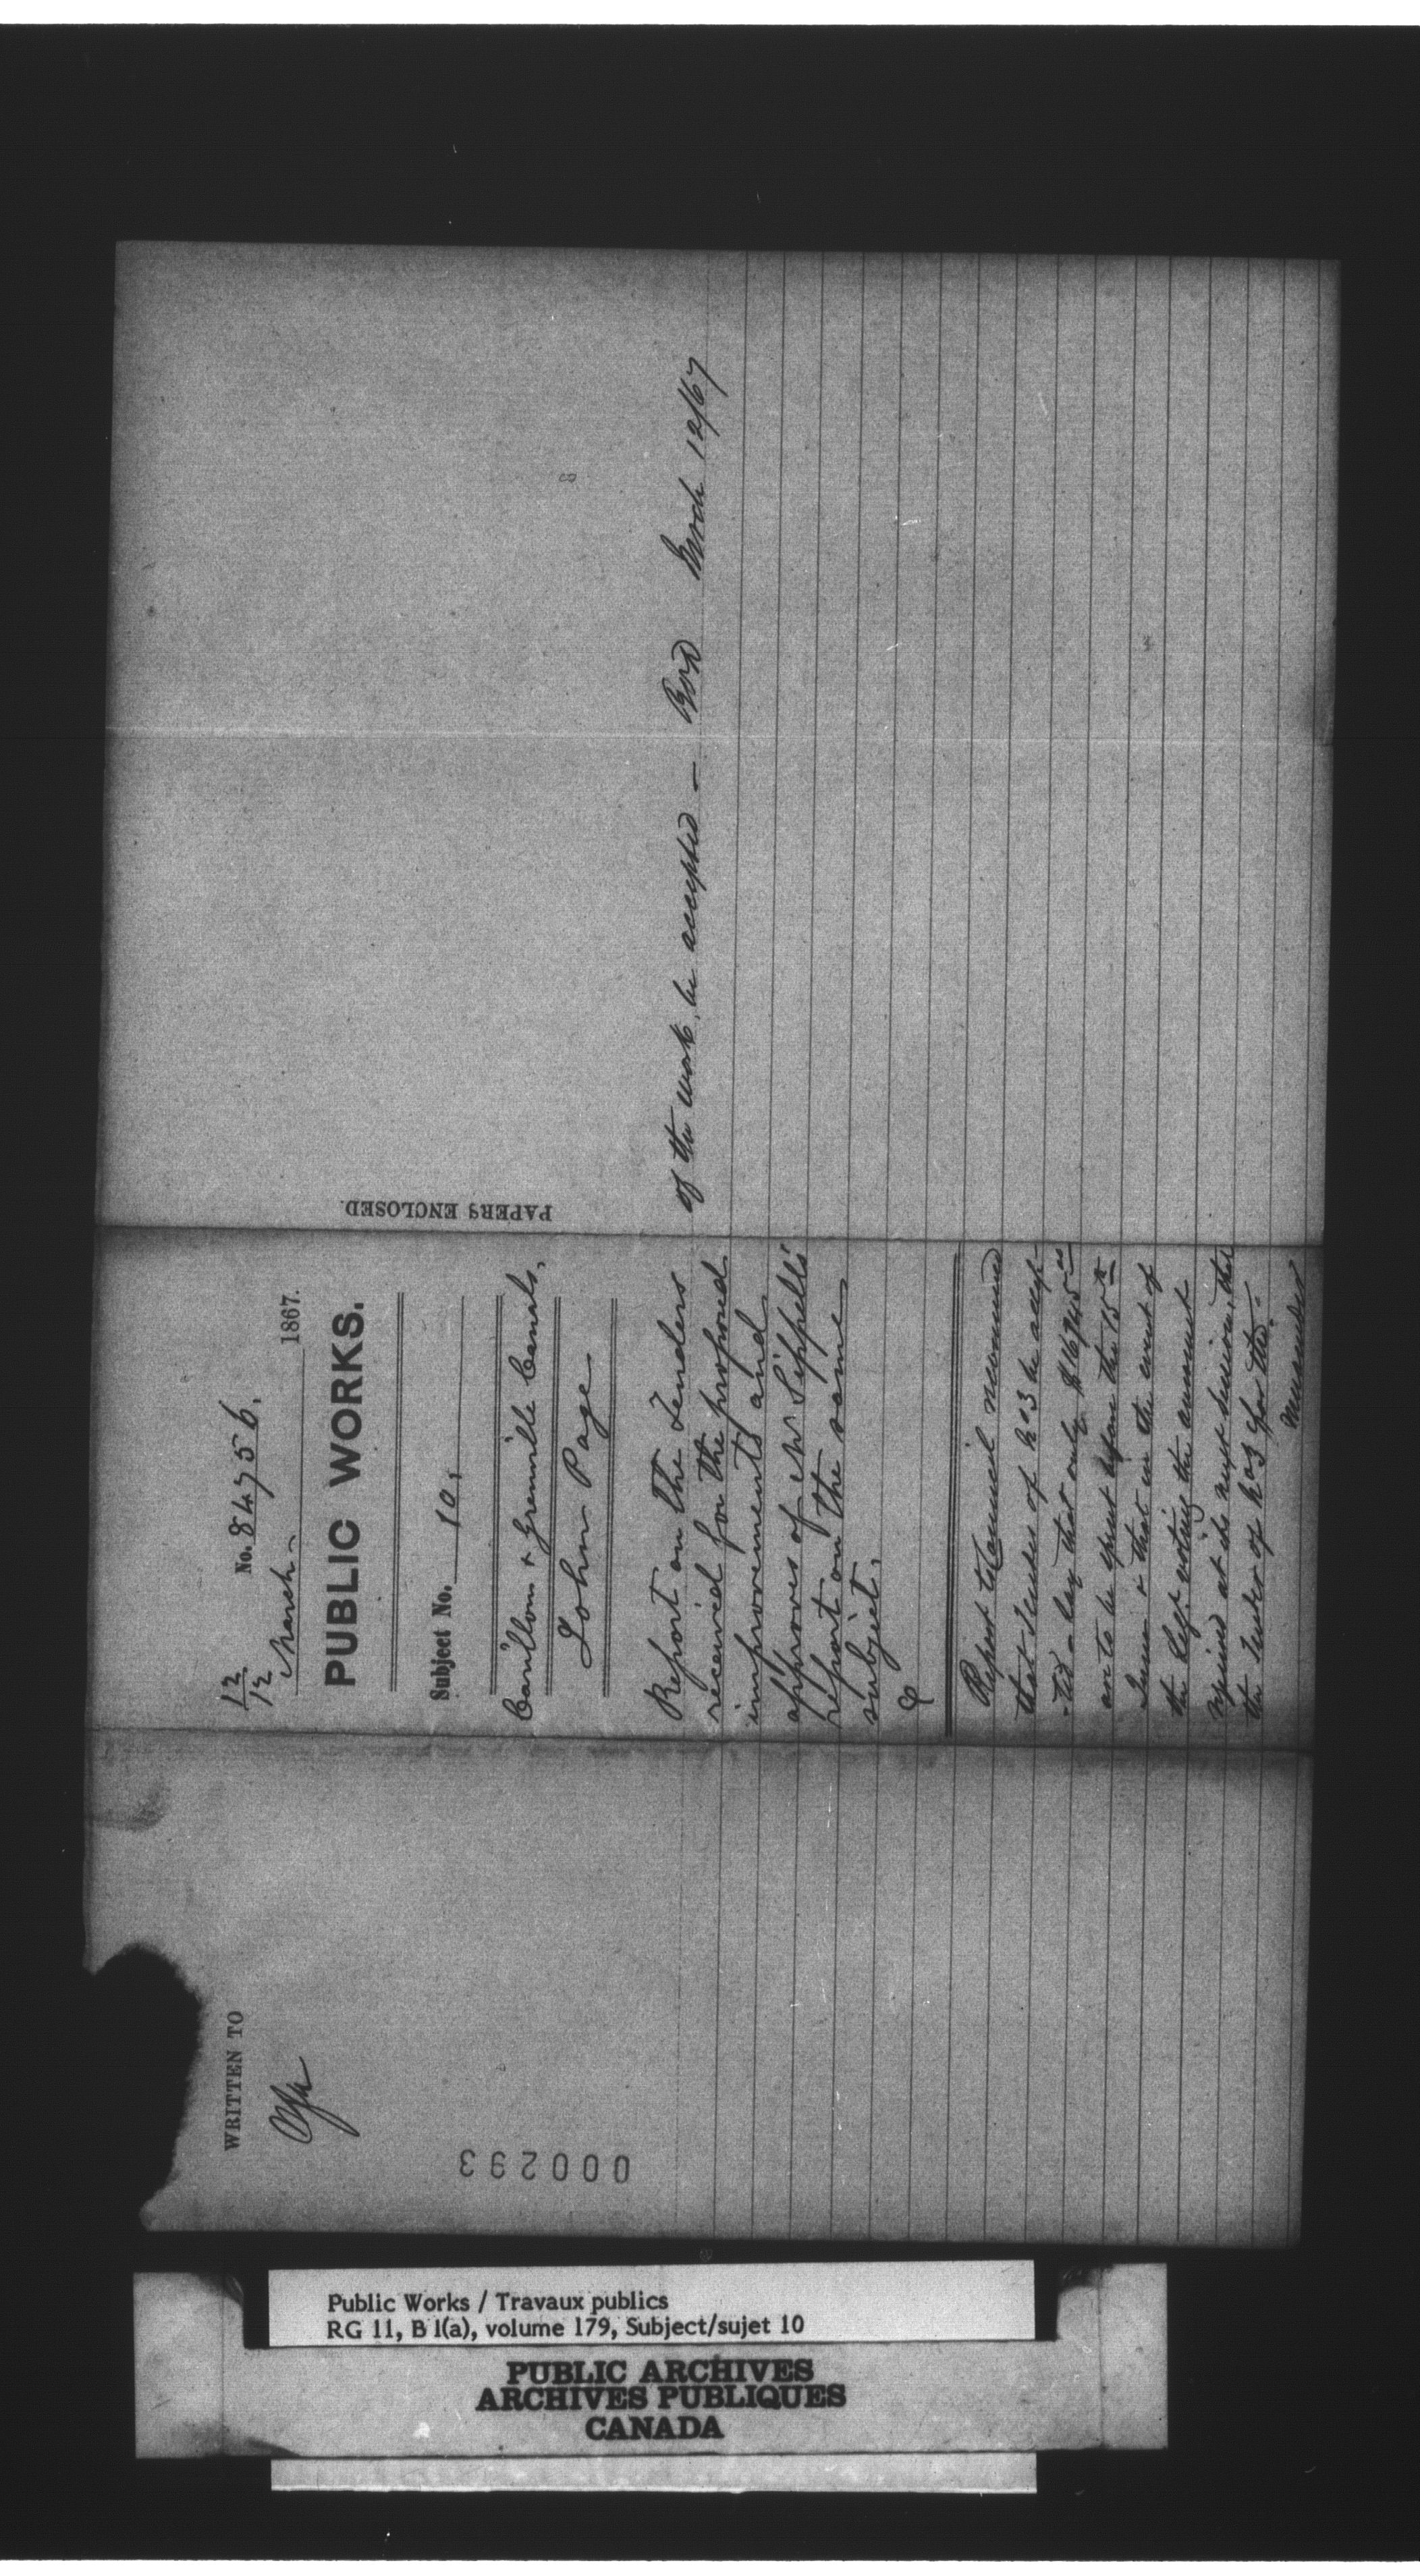 WRITTEN TO
000293
No. 84756.
12
12 March 1867.
PUBLIC WORKS.
Subject No. 10,
Carillon & Grenville Canals,
John Page
Report on the Tenders
received for the proposed
improvements and
approves of Mr Sippell's
report on the same
subject.
Report to Council recommend
that Tender of No 3 be accep-
ted - say that only $16745
are to be spent before the 15th
June & that in the event of
the Legr. voting the amount
required at its next session, that
the Tender of No 3 for the
remainder
of the work, be accepted —
March 12/67
PAPERS ENCLOSED.
Public Works / Travaux publics
RG 11, B 1(a), volume 179, Subject/sujet 10
PUBLIC ARCHIVES
ARCHIVES PUBLIQUES
CANADA